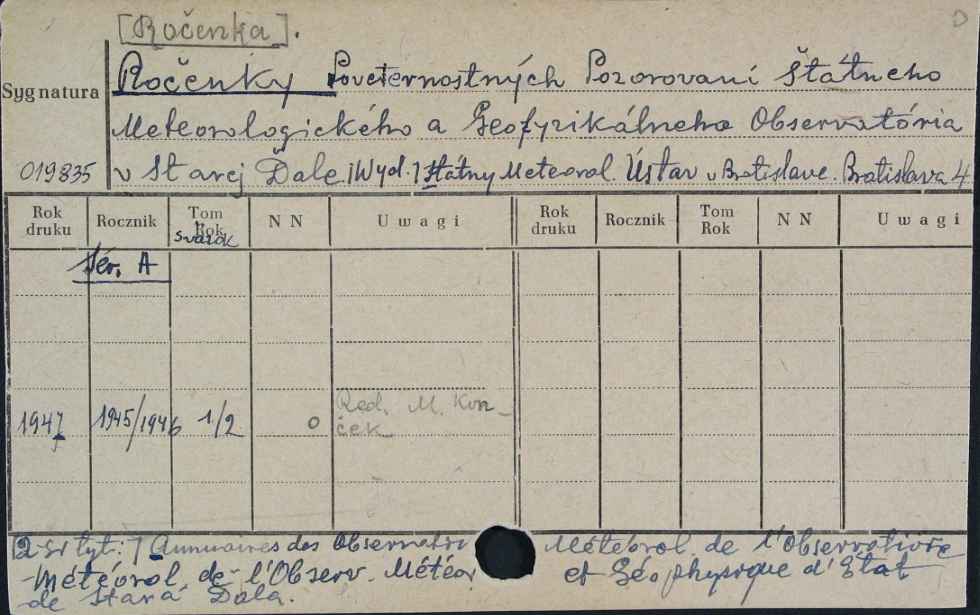 [Ročenka].
Ročenky Poveternostných Pozorovaní Štátneho
Sygnatura
Meteorologického a Geofyzikálneho Observatória
019835
v Starej Ďale. [Wyd.:] Štátny Meteorol. Ústav v Bratislave. Bratislava 4
Rok druku Rocznik Tom Rok N N Uwagi Rok druku Rocznik Tom Rok N N Uwagi
Svázok
Sér. A
1947 1945/1946 1/2 o Red. M. Kon-
ček
[2-gi tyt:] Annuaires des Observatio Météorol. de l'Observatoire
Météorol. de l'Observ. Météor et Géophysique d'État
de Stará Ďala.